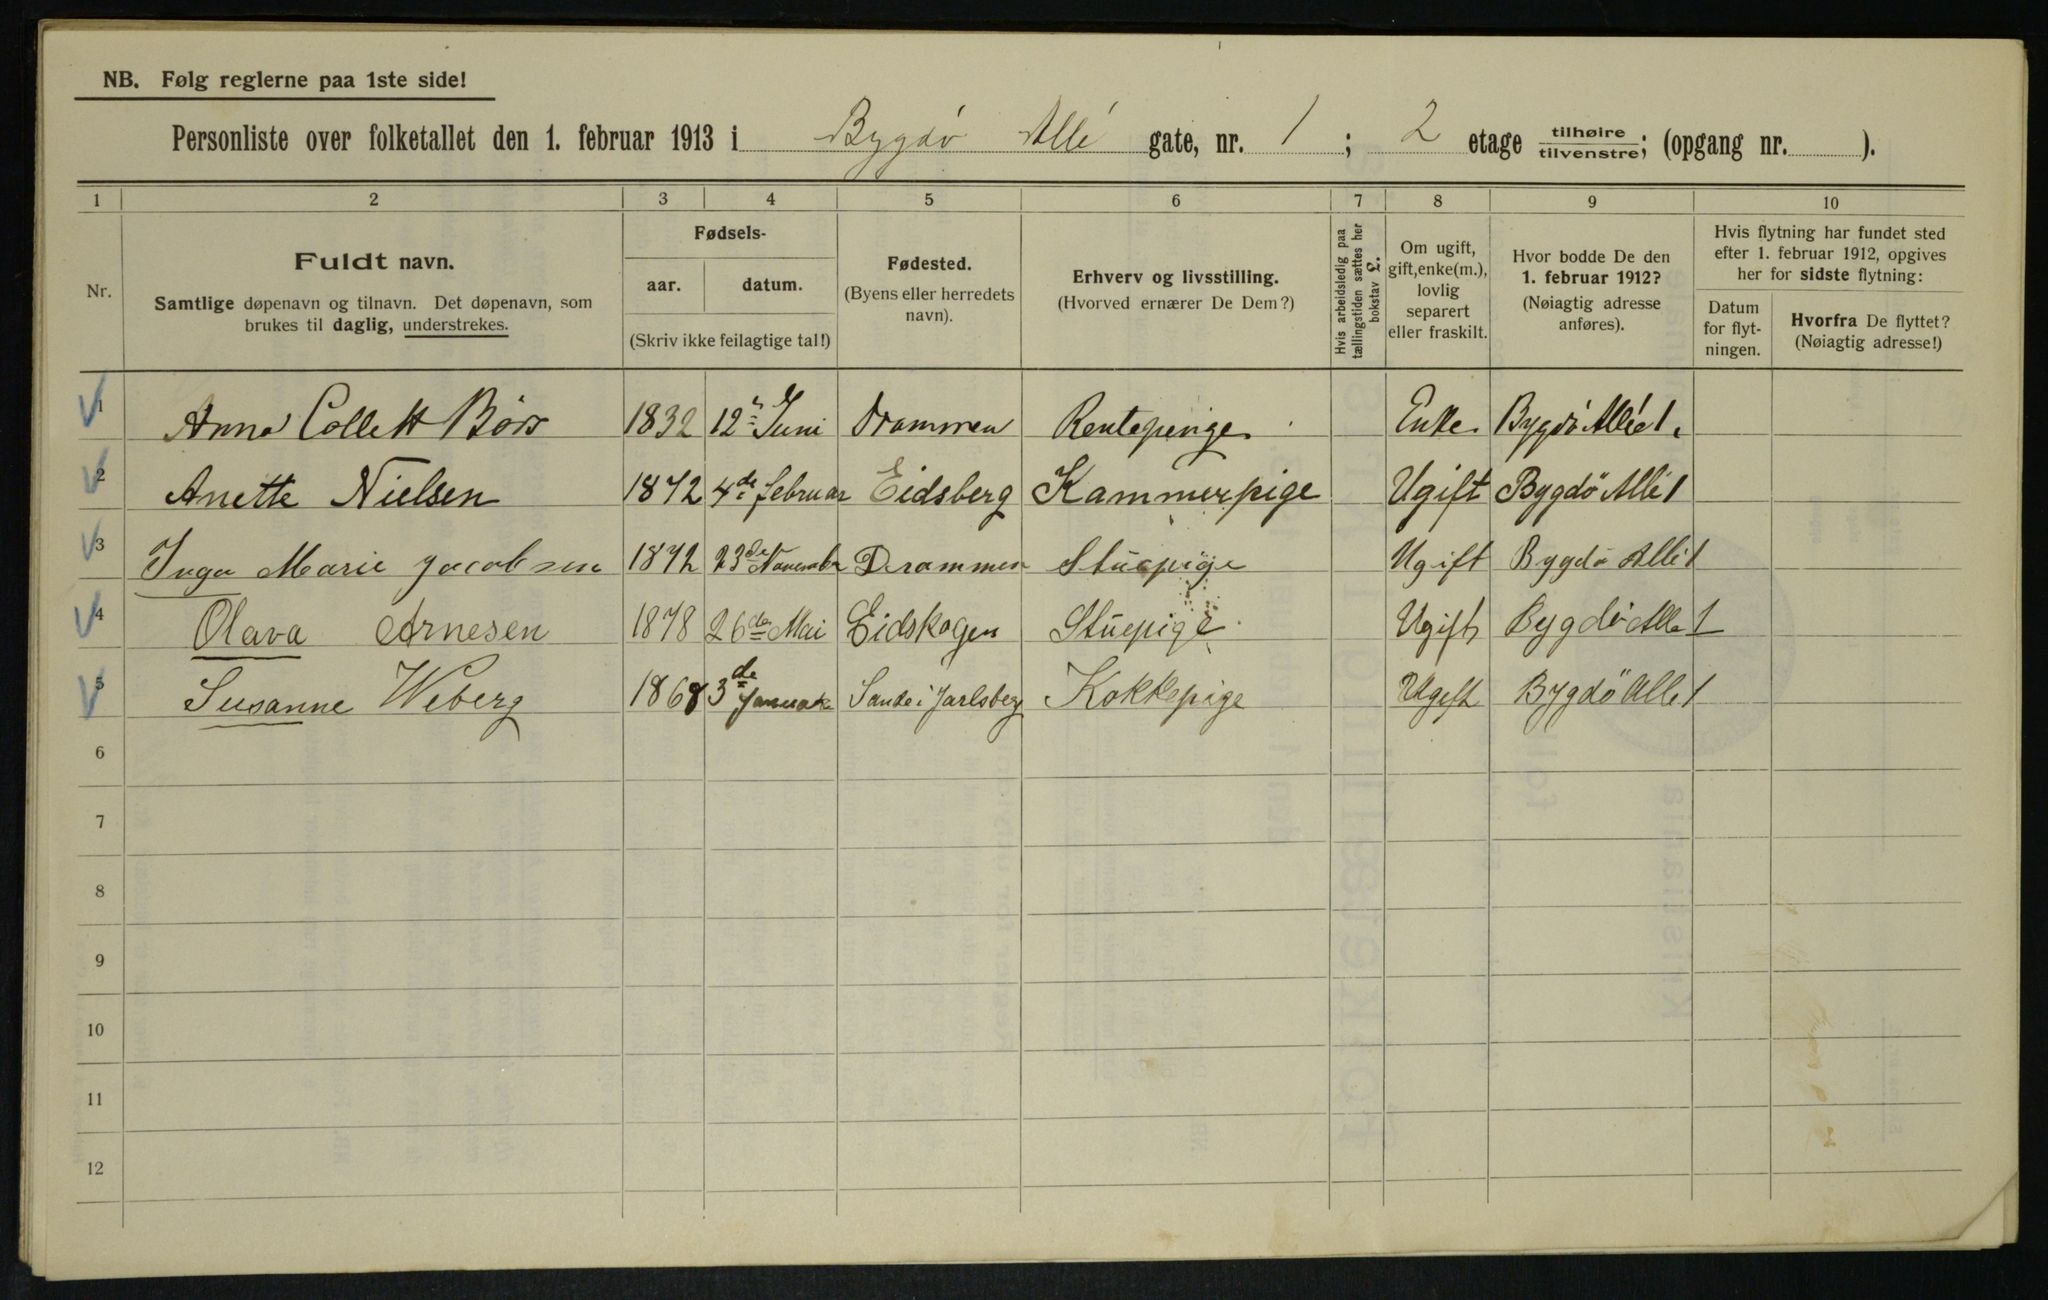 NB. Følg reglerne paa 1ste side!
Personliste over folketallet den 1. februar 1913 i Bygdø Allé gate, nr. 1 ; 2 etage tilhøire/tilvenstre; (opgang nr. ).
1 2 3 4 5 6 7 8 9 10
Nr.
Fuldt navn.
Samtlige døpenavn og tilnavn. Det døpenavn, som
brukes til daglig, understrekes.
Fødsels-
aar. datum.
(Skriv ikke feilagtige tal!)
Fødested.
(Byens eller herredets
navn).
Erhverv og livsstilling.
(Hvorved ernærer De Dem?)
Hvis arbeidsledig paa
tællingstiden sættes her
bokstav L.
Om ugift,
gift, enke(m.),
lovlig
separert
eller fraskilt.
Hvor bodde De den
1. februar 1912?
(Nøiagtig adresse
anføres).
Hvis flytning har fundet sted
efter 1. februar 1912, opgives
her for sidste flytning:
Datum
for flyt-
ningen.
Hvorfra De flyttet?
(Nøiagtig adresse!)
1 Anna Collett Børs 1832 12te Juni Drammen Rentepenge Enke Bygdø Allé 1.
2 Anette Nielsen 1872 4de februar Eidsberg Kammerpige Ugift Bygdø Allé 1
3 Inga Marie Jacobsen 1872 23de November Drammen Stuepige Ugift Bygdø Alle 1
4 Olava Arnesen 1878 26de Mai Eidskogen Stuepige Ugift Bygdø Alle 1
5 Susanne Weberg 1868 3de Januar Sande i Jarlsberg Kokkepige Ugift Bygdø Alle 1
6
7
8
9
10
11
12